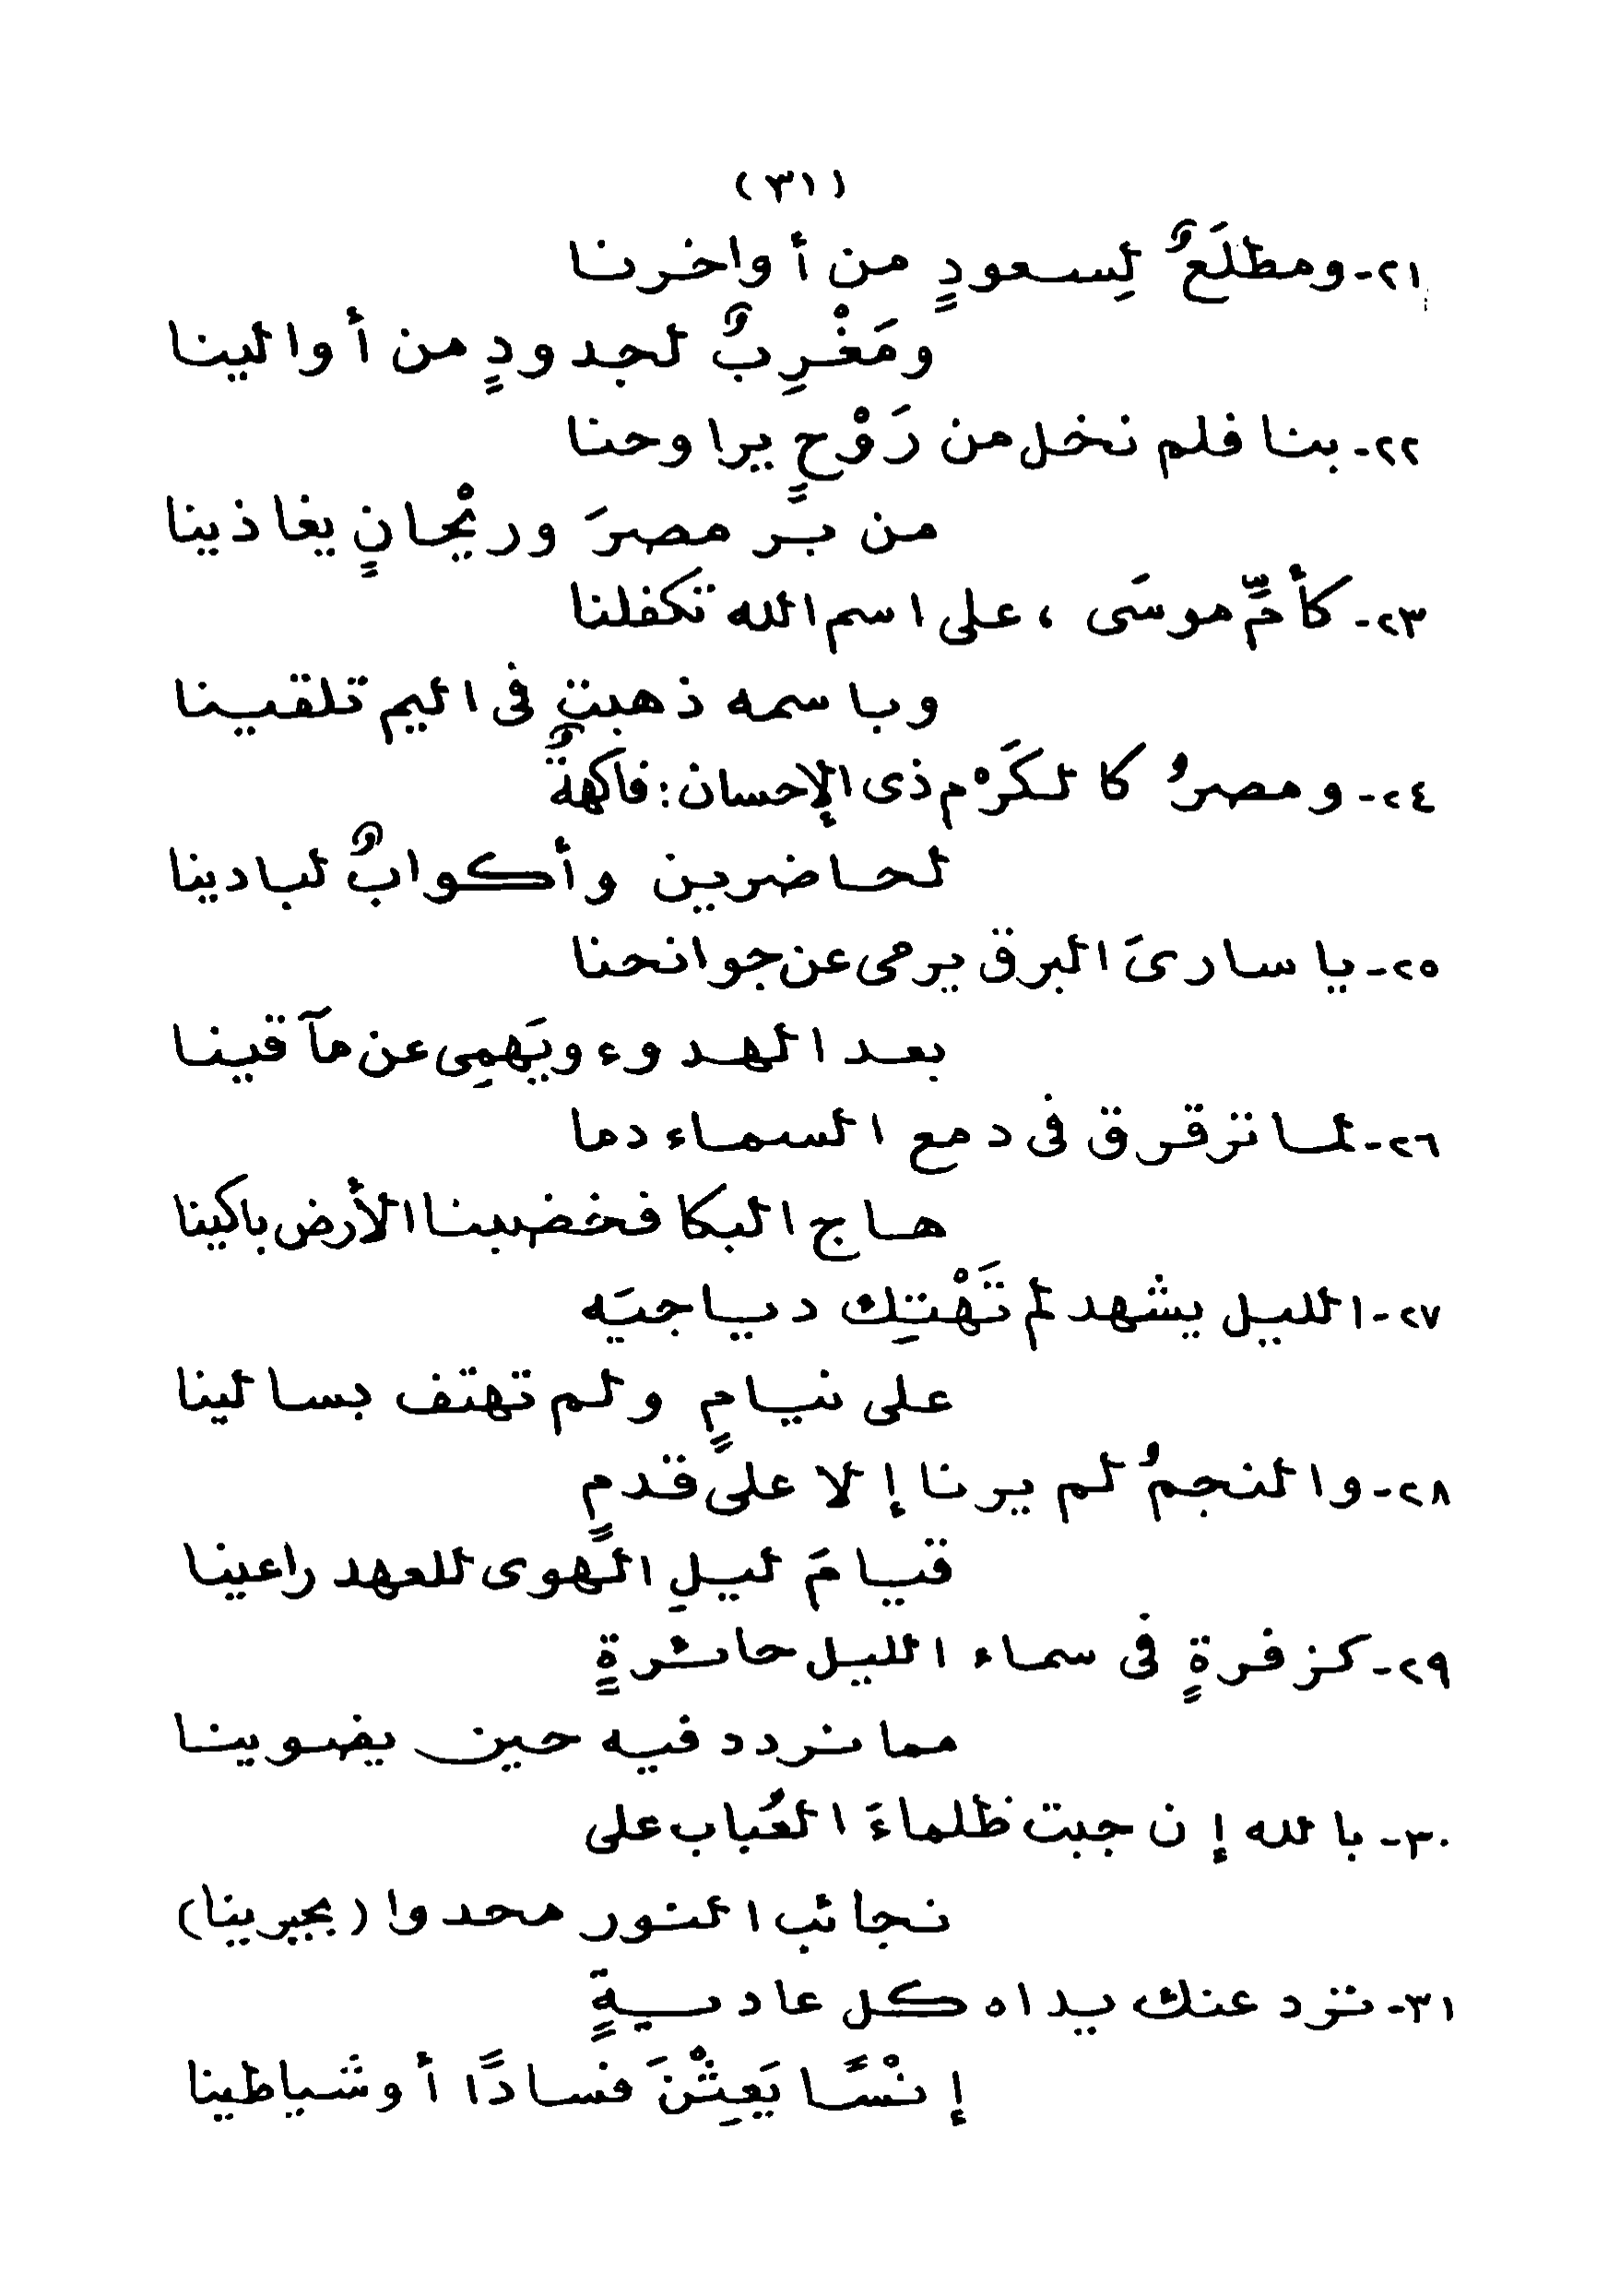 (٣١)
٢١- ومطلَعٌ لِسعودٍ من أواخرنا
ومَغْرِبٌ لجدودٍ من أوالينا
٢٢- بنا فلم نخل من رَوْحٍ يراوحنا
من بر مصرَ وريْحانٍ يغاذينا
٢٣- كأمِّ موسَى ، على اسم الله تكفلنا
وباسمه ذهبت في اليم تلقينا
٢٤- ومصرُ كالكَرْم ذى الإحسان : فاكهةٌ
لحاضرين وأكوابٌ لبادينا
٢٥- يا سارىَ البرق يرمى عن جوانحنا
بعد الهدوء ويَهمِى عن مآقينا
٢٦- لما ترقرق فى دمع السماء دما
هاج البكا فخضبنا الأرض باكينا
٢٧- الليل يشهد لم تَهْتِك دياجيَه
على نيامٍ ولم تهتف بسالينا
٢٨- والنجمُ لم يرنا إلا على قدمٍ
قيامَ ليلِ الهوى للعهد راعينا
٢٩- كزفرةٍ فى سماء الليل حائرةٍ
مما نردد فيه حين يضوينا
٣٠- بالله إن جبت ظلماءَ العُباب على
نجائب النور محدوا (بجبرينا)
٣١- ترد عنك يداه كل عاديةٍ
إنْسًا يَعِثْنَ فسادًا أو شياطينا